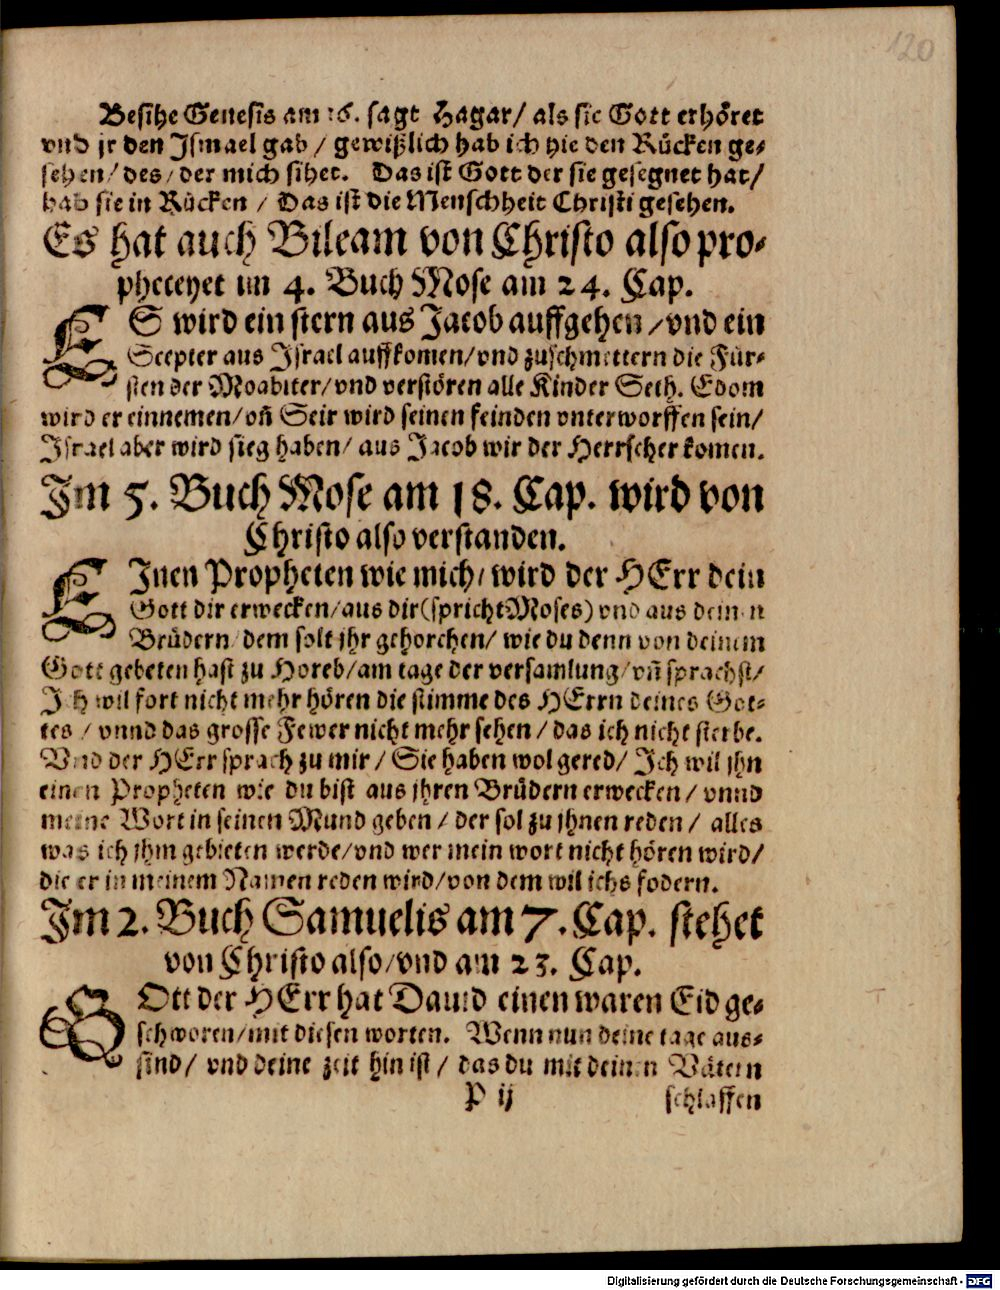 120
Besihe Genesis am 16. sagt Hagar/ als sie Gott erhöret
vnd jr den Ismael gab / gewißlich hab ich hie den Rücken ge-
sehen/ des/ der mich sihet. Das ist Gott der sie gesegnet hat/
hab sie in Rücken / Das ist die Menschheit Christi gesehen.
Es hat auch Bileam von Christo also pro-
pheteyet im 4. Buch Mose am 24. Cap.
ES wird ein stern aus Jacob auffgehen/ vnd ein
Scepter aus Israel auffkomen/ vnd zuschmettern die Für-
sten der Moabiter/ vnd verstören alle Kinder Seth. Edom
wird er einnemen/ vñ Seir wird seinen feinden vnterworffen sein/
Israel aber wird sieg haben/ aus Jacob wir der Herrscher komen.
Im 5. Buch Mose am 18. Cap. wird von
Christo also verstanden.
EInen Propheten wie mich/ wird der HErr dein
Gott dir erwecken/ aus dir (spricht Moses) vnd aus deinen
Brüdern/ dem solt jhr gehorchen/ wie du denn von deinem
Gott gebeten hast zu Horeb/ am tage der versamlung/ vñ sprachst/
Ich wil fort nicht mehr hören die stimme des HErrn deines Got-
tes / vnnd das grosse Fewer nicht mehr sehen / das ich nicht sterbe.
Vnd der HErr sprach zu mir / Sie haben wol gered/ Ich wil jhn
einen Propheten wie du bist aus jhren Brüdern erwecken / vnnd
meine Wort in seinen Mund geben / der sol zu jhnen reden / alles
was ich jhm gebieten werde/ vnd wer mein wort nicht hören wird/
die er in meinem Namen reden wird/ von dem wil ichs fodern.
Im 2. Buch Samuelis am 7. Cap. stehet
von Christo also/ vnd am 23. Cap.
GOtt der HErr hat Dauid einen waren Eid ge-
schworen/ mit diesen worten. Wenn nun deine tage aus-
sind/ vnd deine zeit hin ist / das du mit deinen Vätern
P ij schlaffen
Digitalisierung gefördert durch die Deutsche Forschungsgemeinschaft - DFG